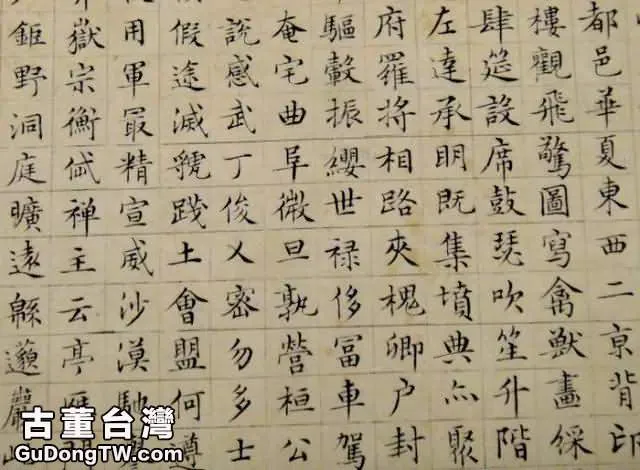 都邑華夏東西二亰背邙
樓觀飛驚圖寫禽獸畫綵
肆筵設席鼓瑟吹笙升階
左達承明既集墳典亦聚
府羅將相路夾槐卿户封
驅轂振纓世禄侈富車駕
奄宅曲阜微旦孰營桓公
說感武丁俊乂密勿多士
假途滅虢踐土會盟何遵
用軍最精宣威沙漠馳
嶽宗衡岱禅主云亭
鉅野洞庭曠遠緜邈巖
古董台灣
GuDongTW.com